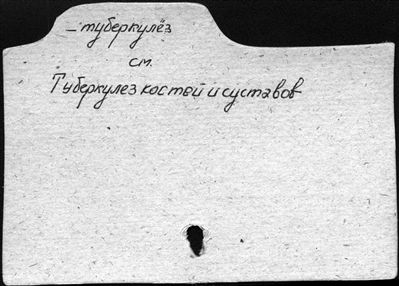 – туберкулёз
см.
Туберкулез костей и суставов